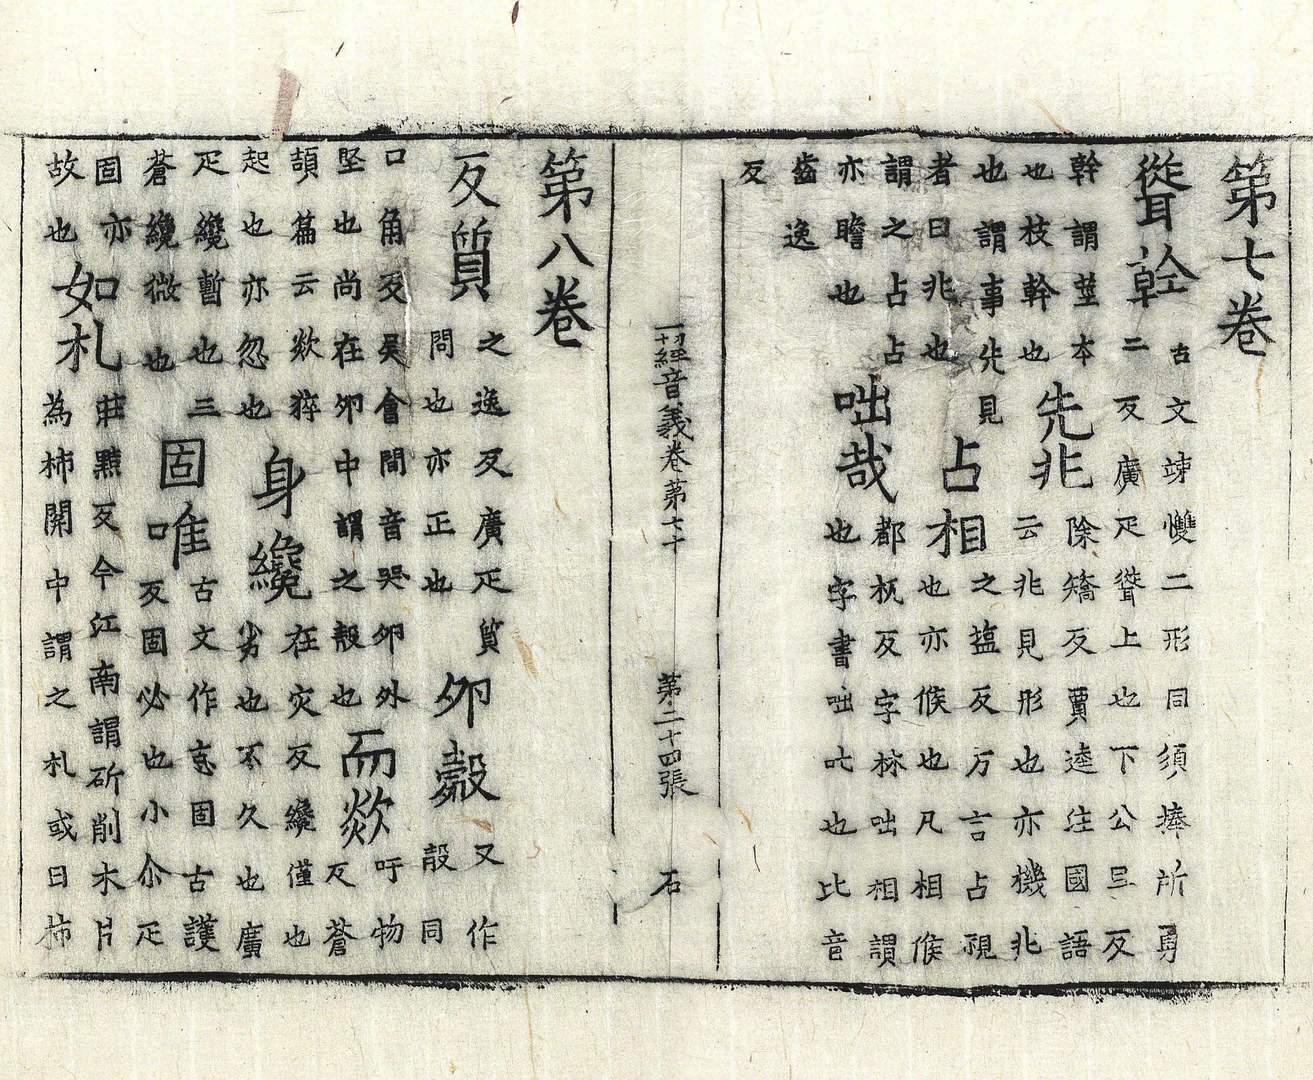 第七卷
聳幹古文竦㩳二形同須捧所勇
二反廣疋聳上也下公旦反
幹謂莖本
也枝幹也
先兆除矯反賈逵注國語
云兆見形也亦機兆
也謂事先見
者曰兆也
占相之塩反方言占視
也亦候也凡相候
謂之占占
亦瞻也
咄哉都杌反字林咄相謂
也字書咄叱也叱音
齒逸
反
一切經音義卷第七十 第二十四張 石
第八卷
反質之逸反廣疋質
問也亦正也
卵㲉又作
㱿同
口角反吴會間音哭卵外
堅也尚在卵中謂之㱿也
而欻吁物
反蒼
頡篇云欻猝
起也亦忽也
身纔在灾反纔僅也
劣也不久也廣
疋纔暫也三
蒼纔微也
固唯古文作怘固古護
反固必也小尒疋
固亦
故也
如札莊黠反今江南謂斫削木片
為柹關中謂之札或曰柹